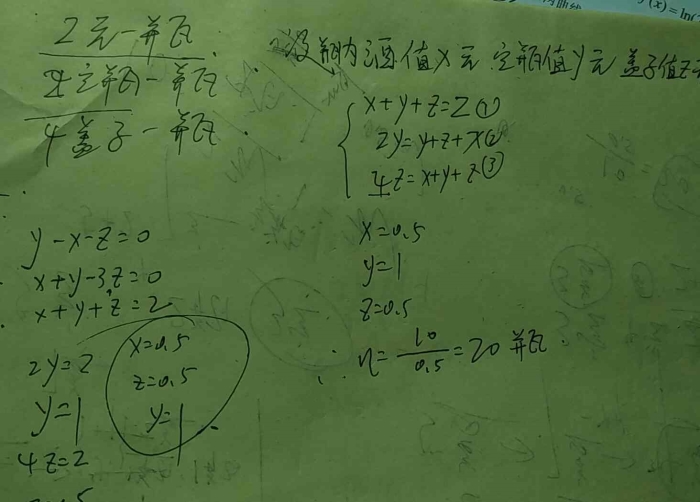 2元一瓶
2空瓶一瓶
4盖子一瓶
设瓶内酒值x元 空瓶值y元 盖子值z元
x+y+z=2①
2y=y+z+x②
4z=x+y+z③
x=0.5
y=1
z=0.5
∴ n=10/0.5=20 瓶
y-x-z=0
x+y-3z=0
x+y+z=2
2y=2
y=1
4z=2
x=0.5
z=0.5
y=1